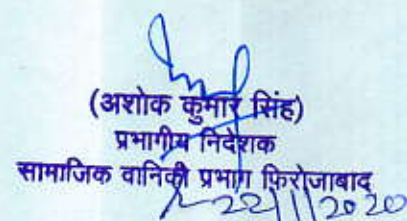 (अशोक कुमार सिंह)
प्रभागीय निदेशक
सामाजिक वानिकी प्रभाग फ़िरोजाबाद